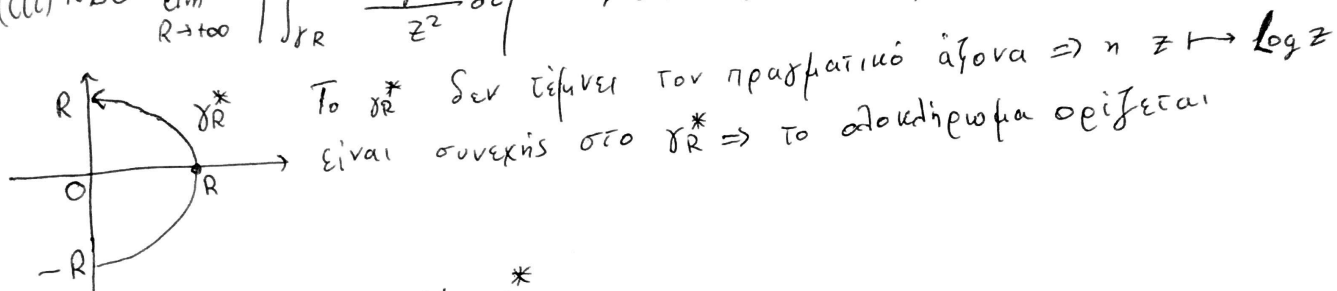 R→+∞ | ∫γR z²
R γR* Το γR* δεν τέμνει τον πραγματικό άξονα => η z ↦ Log z
είναι συνεχής στο γR* => το ολοκλήρωμα ορίζεται
O R
-R
*